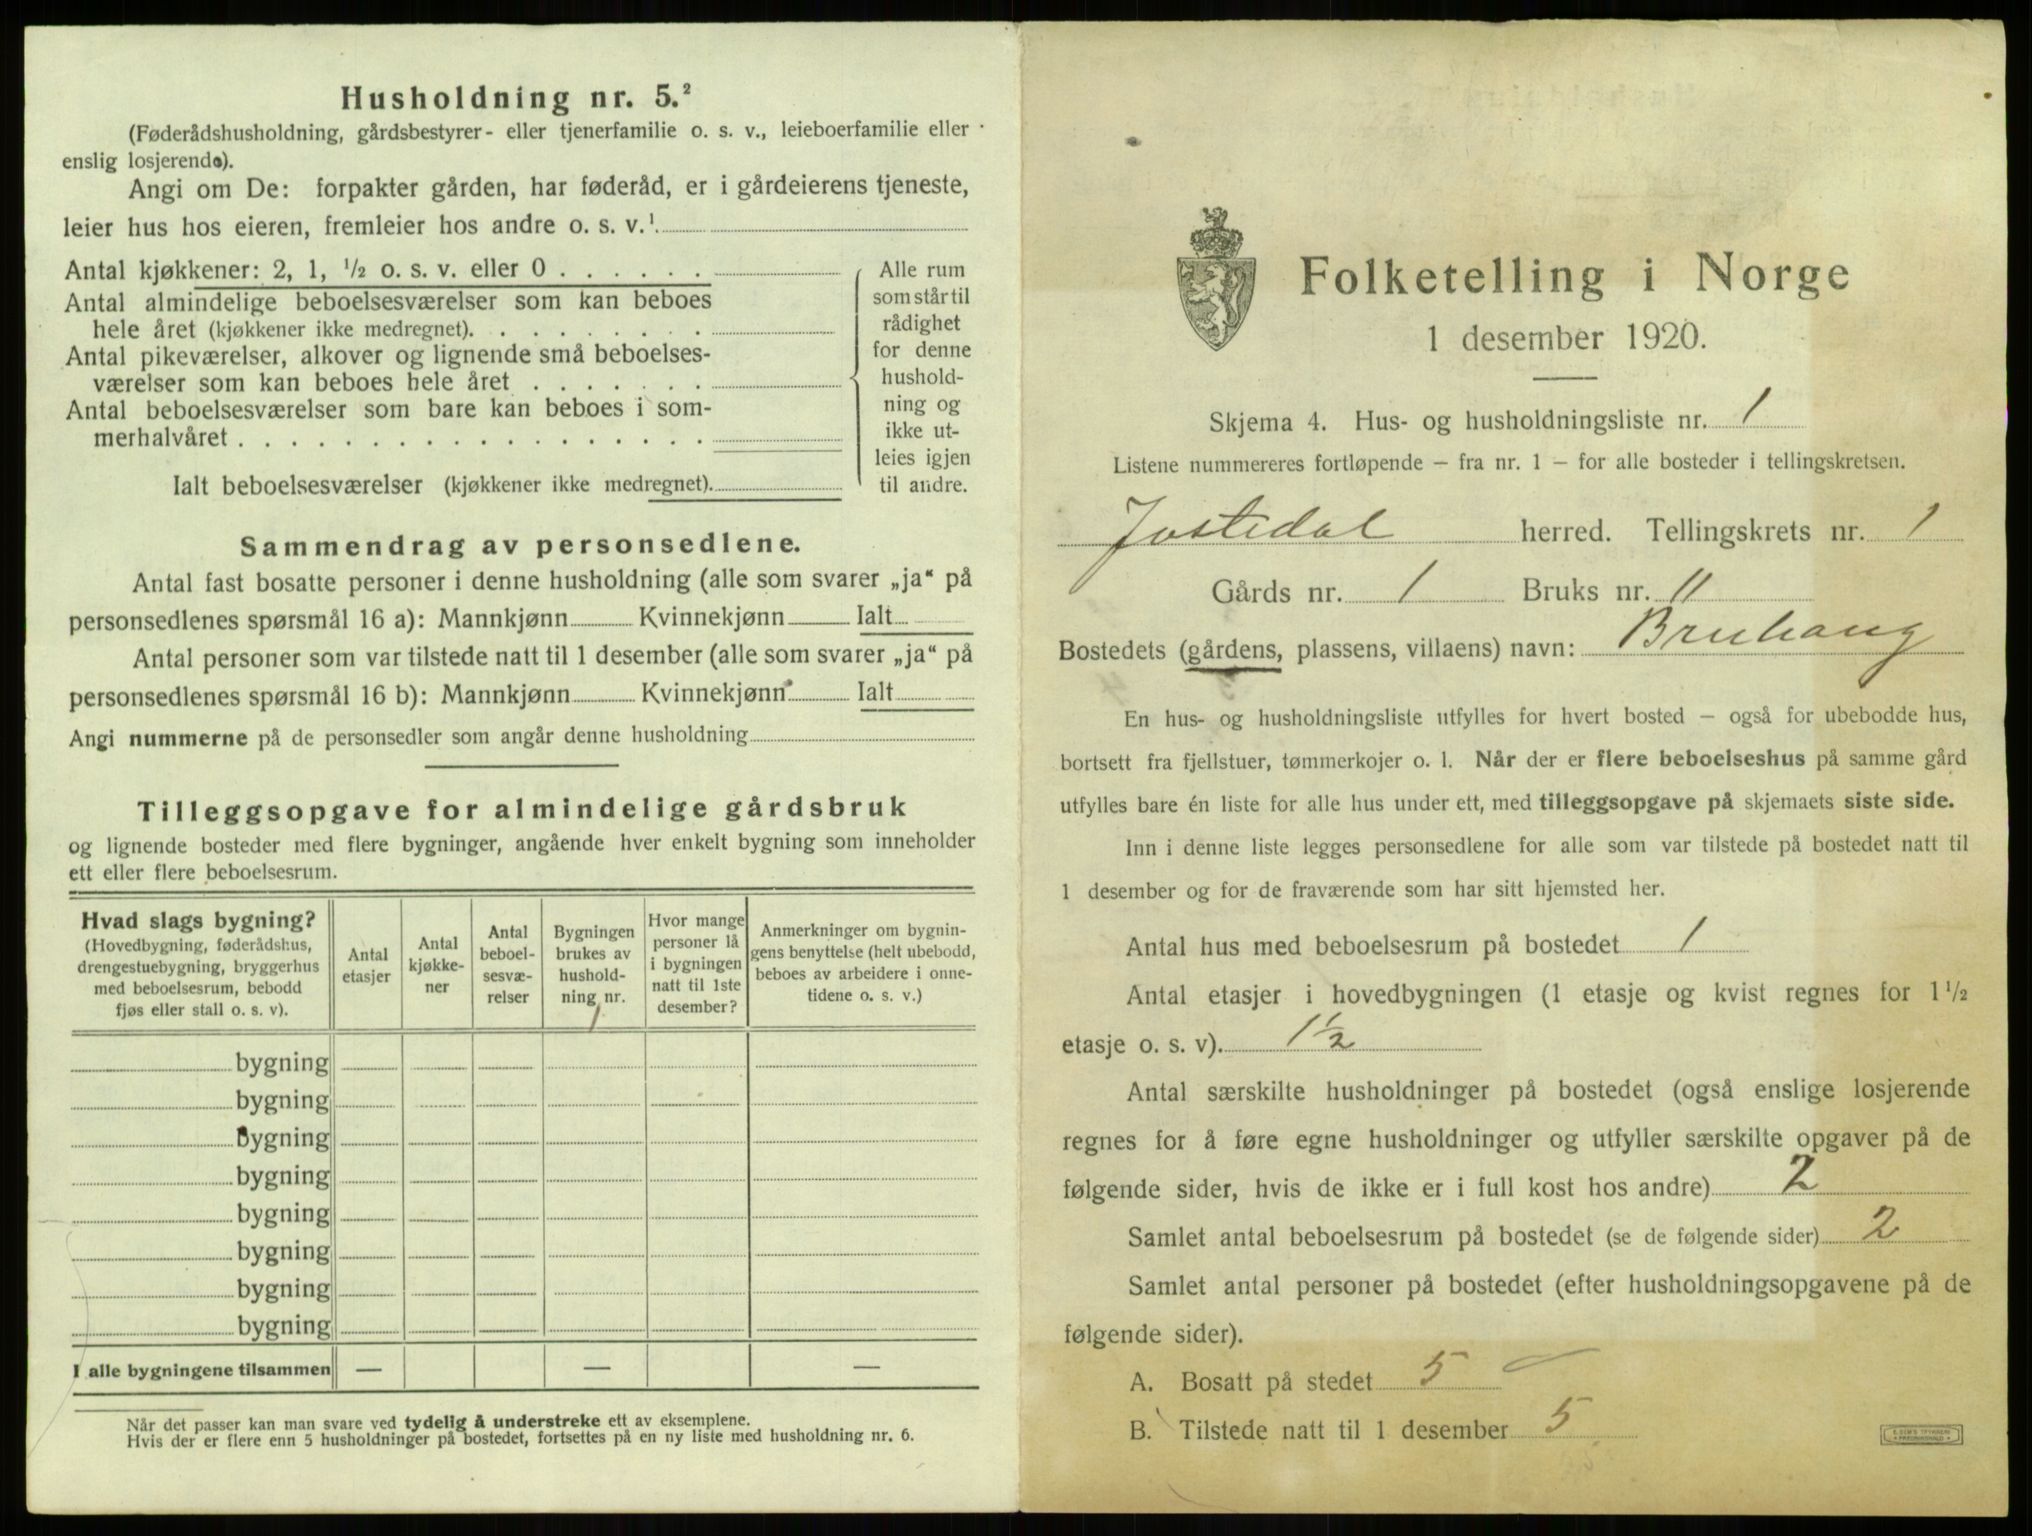 Husholdning nr. 5.²
(Føderådshusholdning, gårdsbestyrer- eller tjenerfamilie o. s. v., leieboerfamilie eller
enslig losjerende).
Angi om De: forpakter gården, har føderåd, er i gårdeierens tjeneste,
leier hus hos eieren, fremleier hos andre o. s. v.¹
Antal kjøkkener: 2, 1, ½ o. s. v. eller 0
Antal almindelige beboelsesværelser som kan beboes
hele året (kjøkkener ikke medregnet).
Antal pikeværelser, alkover og lignende små beboelses-
værelser som kan beboes hele året
Antal beboelsesværelser som bare kan beboes i som-
merhalvåret
Ialt beboelsesværelser (kjøkkener ikke medregnet).
Alle rum
som står til
rådighet
for denne
hushold-
ning og
ikke ut-
leies igjen
til andre.
Sammendrag av personsedlene.
Antal fast bosatte personer i denne husholdning (alle som svarer „ja“ på
personsedlenes spørsmål 16 a): Mannkjønn Kvinnekjønn Ialt
Antal personer som var tilstede natt til 1 desember (alle som svarer „ja“ på
personsedlenes spørsmål 16 b): Mannkjønn Kvinnekjønn Ialt
Angi nummerne på de personsedler som angår denne husholdning
Tilleggsopgave for almindelige gårdsbruk
og lignende bosteder med flere bygninger, angående hver enkelt bygning som inneholder
ett eller flere beboelsesrum.
Hvad slags bygning?
(Hovedbygning, føderådshus,
drengestuebygning, bryggerhus
med beboelsesrum, bebodd
fjøs eller stall o. s. v).
Antal
etasjer
Antal
kjøkke-
ner
Antal
beboel-
sesvæ-
relser
Bygningen
brukes av
hushold-
ning nr.
1
Hvor mange
personer lå
i bygningen
natt til 1ste
desember?
Anmerkninger om bygnin-
gens benyttelse (helt ubebodd,
beboes av arbeidere i onne-
tidene o. s. v.)
bygning
bygning
bygning
bygning
bygning
bygning
bygning
bygning
I alle bygningene tilsammen — — —
Når det passer kan man svare ved tydelig å understreke ett av eksemplene.
Hvis der er flere enn 5 husholdninger på bostedet, fortsettes på en ny liste med husholdning nr. 6.
Folketelling i Norge
1 desember 1920.
Skjema 4. Hus- og husholdningsliste nr. 1
Listene nummereres fortløpende – fra nr. 1 – for alle bosteder i tellingskretsen.
Jostedal herred. Tellingskrets nr. 1
Gårds nr. 1 Bruks nr. 11
Bostedets (gårdens, plassens, villaens) navn: Bruhaug
En hus- og husholdningsliste utfylles for hvert bosted – også for ubebodde hus,
bortsett fra fjellstuer, tømmerkojer o. l. Når der er flere beboelseshus på samme gård
utfylles bare én liste for alle hus under ett, med tilleggsopgave på skjemaets siste side.
Inn i denne liste legges personsedlene for alle som var tilstede på bostedet natt til
1 desember og for de fraværende som har sitt hjemsted her.
Antal hus med beboelsesrum på bostedet 1
Antal etasjer i hovedbygningen (1 etasje og kvist regnes for 1½
etasje o. s. v). 1½
Antal særskilte husholdninger på bostedet (også enslige losjerende
regnes for å føre egne husholdninger og utfyller særskilte opgaver på de
følgende sider, hvis de ikke er i full kost hos andre) 2
Samlet antal beboelsesrum på bostedet (se de følgende sider) 2
Samlet antal personer på bostedet (efter husholdningsopgavene på de
følgende sider).
A. Bosatt på stedet 5
B. Tilstede natt til 1 desember 5